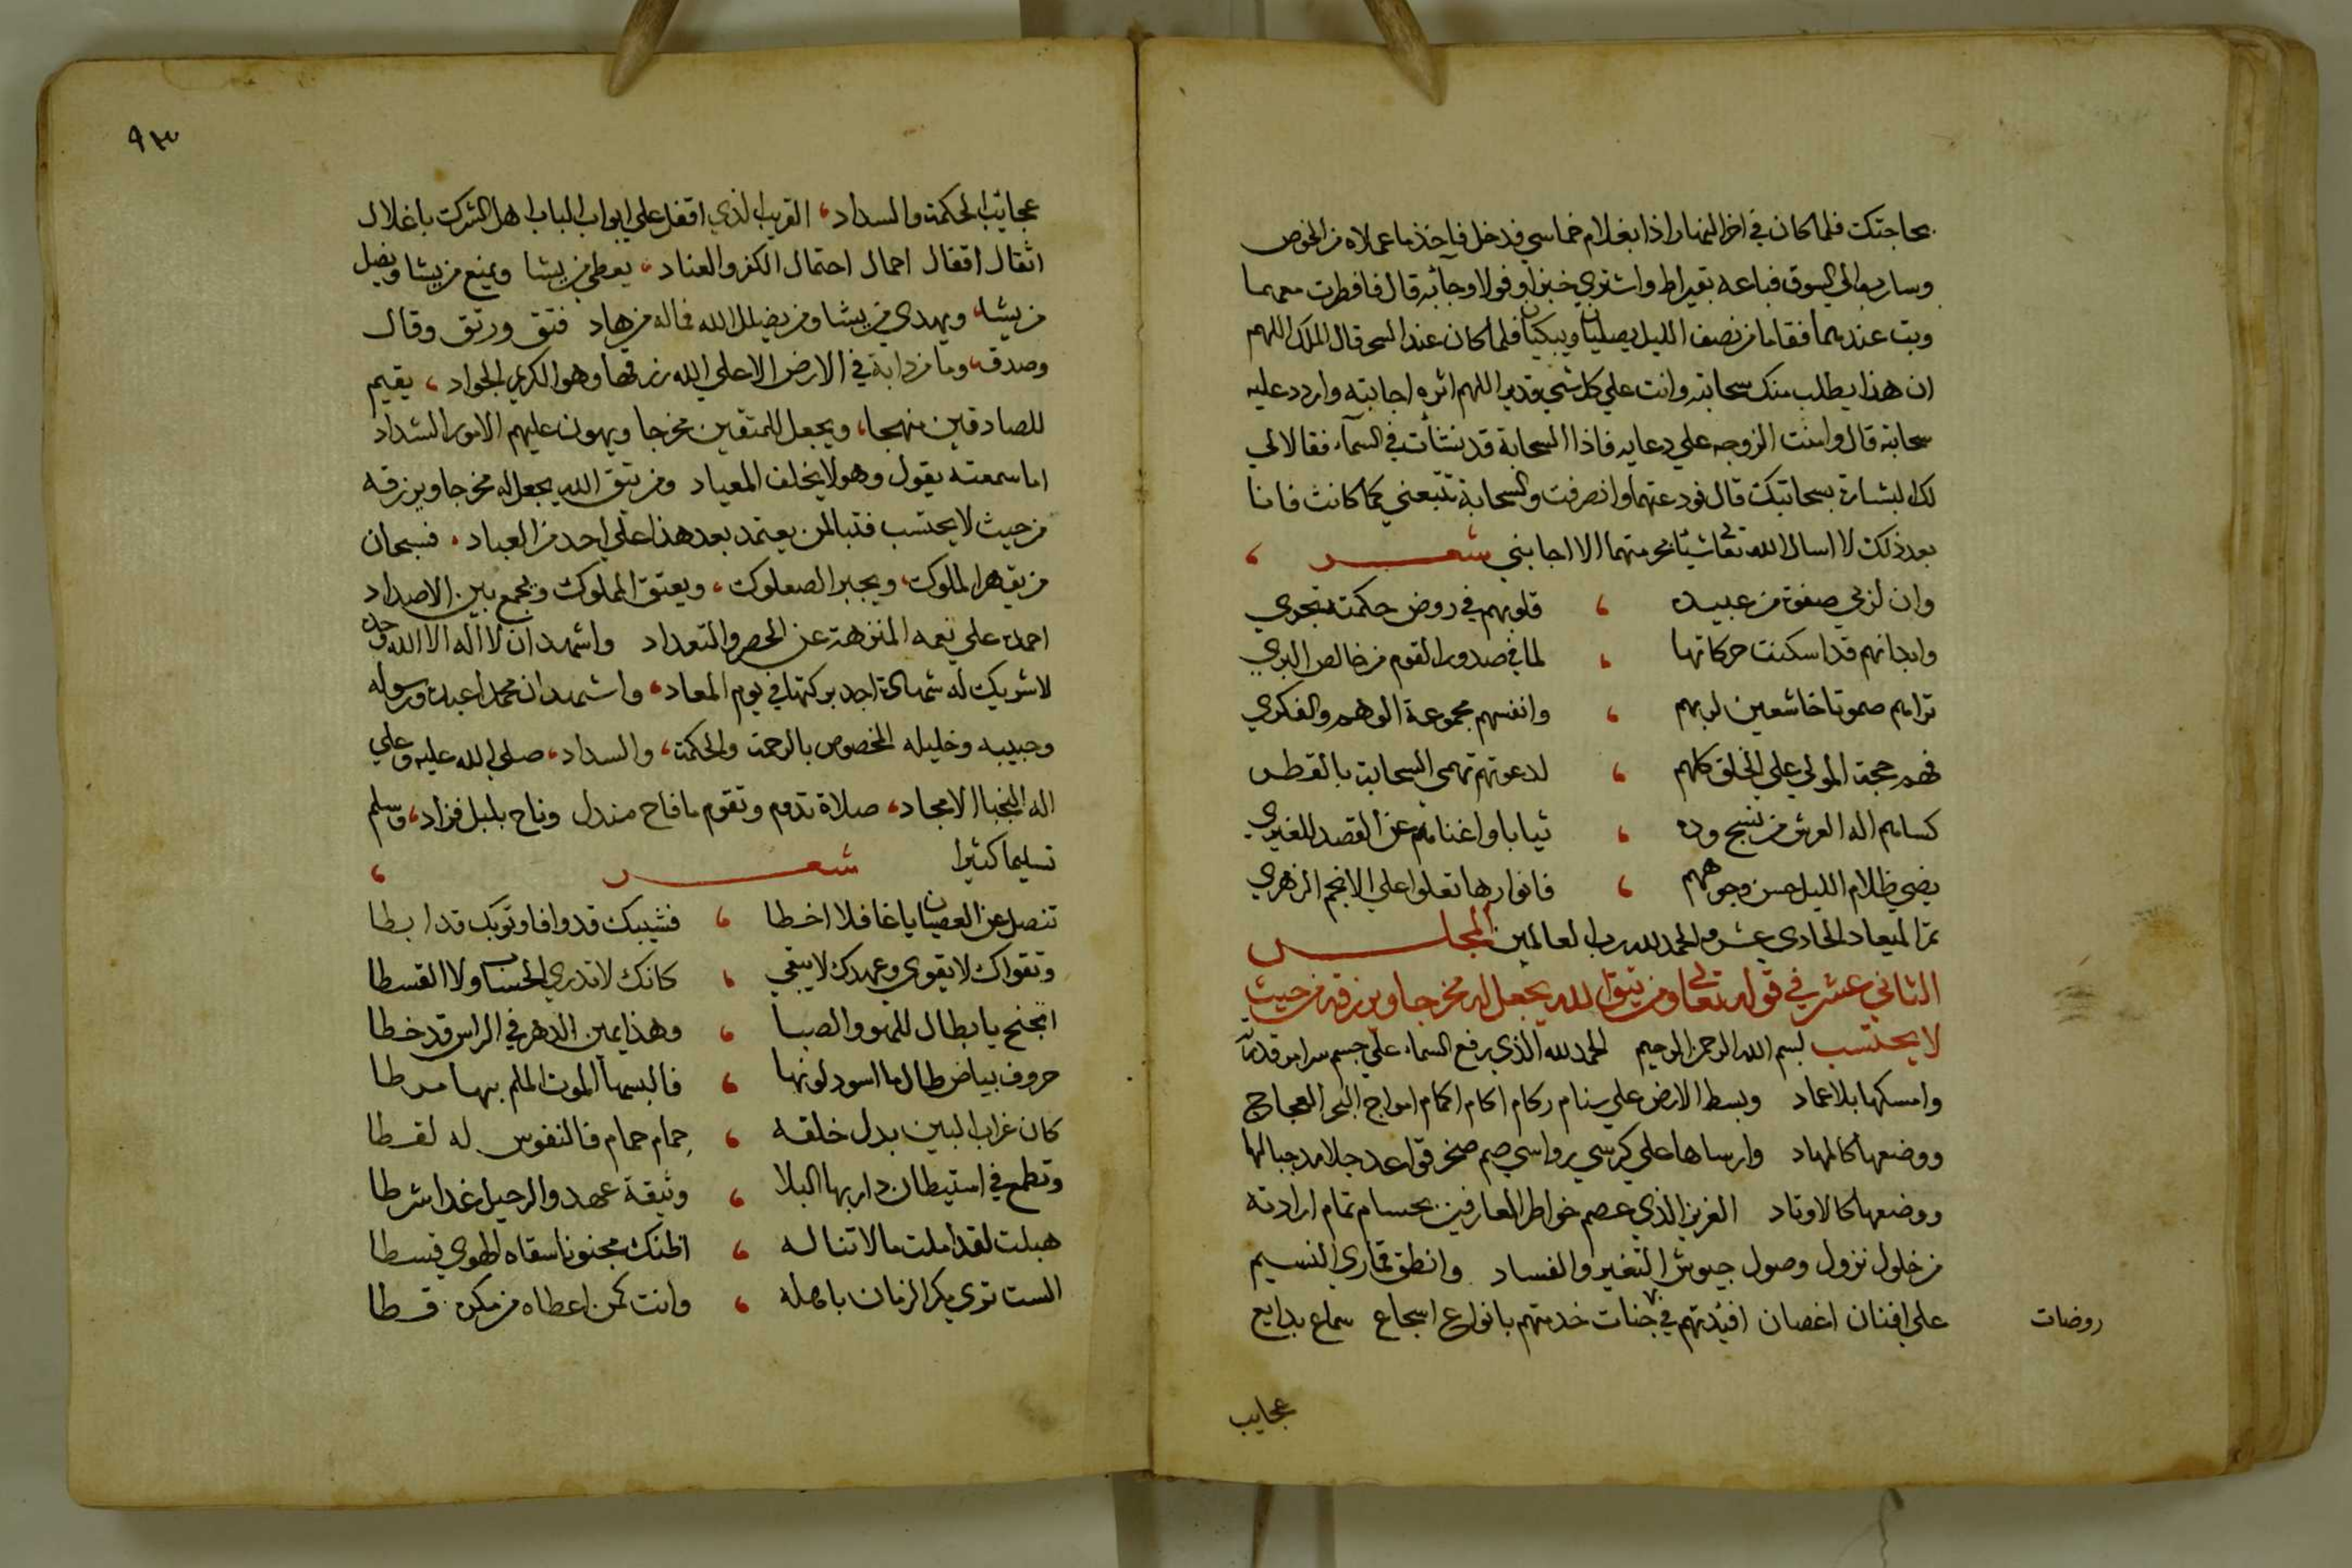 بحاجتك فلما كان في اخر النهار اذا بغلام خماسي قد دخل فاخذ ما عملاه من الخوص
وسار به الي السوق فباعه بقيراط واشتري خبزا وفولا وجا به قال فافطرت معهما
وبت عندهما فقاما من نصف الليل يصليان ويبكيان فلما كان عند السحر قال الملك اللهم
ان هذا يطلب منك سحابته وانت علي كل شي قدير اللهم اثره اجابته واردد عليه
سحابته قال وامنت الزوجه علي دعايه فاذا السحابة قد نشأت في السمآء فقالا لي
لك البشارة بسحابتك قال فودعتهما وانصرفت والسحابة تتبعني كما كانت فانا
بعد ذلك لا اسال الله تعالى شيئا بحرمتهما الا اجابني شعر
وان لربي صفوة من عبيده ، قلوبهم في روض حكمته تجري
وابدانهم قد اسكنت حركاتها ، لما في صدور القوم من خالص البري
تراهم صموتا خاشعين لربهم ، وانفسهم مجموعة الوهم والفكري
فهم حجة المولي علي الخلق كلهم ، لدعوتهم تهمي السحابة بالقطر
كساهم اله العرش من نسج وده ، ثيابا واغناهم عن القصد للغيري
يضي ظلام الليل حسن وجوههم ، فانوارها تعلوا علي الانجم الزهري
تم الميعاد الحادي عشر والحمد لله رب العالمين المجلس
الثاني عشر في قوله تعالى ومن يتق الله يجعل له مخرجا ويرزقه من حيث
لا يحتسب بسم الله الرحمن الرحيم الحمد لله الذي رفع السماء علي جسم سرامر قدرته
وامسكها بلا عماد وبسط الارض علي سنام ركام اكام اكمام امواج البحر العجاج
ووضعها كالمهاد وارساها علي كرسي رواسي صم صخر قواعد جلامد جبالها
ووضعها كالاوتاد العزيز الذي عصم خواطر العارفين بحسام تمام ارادته
من خلول نزول وصول جيوش التغير والفساد وانطق قماري النسيم
علي افنان اغصان افئدتهم في جنات خدمتهم بانواع اسجاع سماع بدايع
روضات
عجايب
٩٣
عجائب الحكمة والسداد ، القريب الذي اقفل علي ابواب الباب اهل الشرك باغلال
اثقال اقفال احمال احتمال الكفر والعناد ، يعطي من يشا ويمنع من يشا ويضل
من يشا ، ويهدي من يشا ومن يضلل الله فماله من هاد فتق ورتق وقال
وصدق ، وما من دابة في الارض الا علي الله رزقها وهو الكريم الجواد ، يقيم
للصادقين منهجا ، ويجعل للمتقين مخرجا ويهون عليهم الامور الشداد
اما سمعته يقول وهو لا يخلف الميعاد ومن يتق الله يجعل له مخرجا ويرزقه
من حيث لا يحتسب فتبا لمن يعتمد بعد هذا علي احد من العباد ، فسبحان
من يقهر الملوك ، ويجبر الصعلوك ، ويعتق المملوك ويجمع بين الاضداد
احمده علي نعمه المنزهة عن الحصر والتعداد واشهد ان لا اله الا الله وحده
لا شريك له شهادة اجد بركتها في يوم المعاد ، واشهد ان محمدا عبده ورسوله
وحبيبه وخليله المخصوص بالرحمة والحكمة ، والسداد ، صلي الله عليه وعلي
اله النجبا الامجاد ، صلاة تدوم وتقوم ما فاح مندل وناح بلبل فزاد ، وسلم
تسليما كثيرا شعر ،
تنصل عن العصيان يا غافلا اخطا ، فشيبك قد وافا وتوبك قد ابطا
وتقواك لا يقوي وعهدك لا يبقي ، كانك لا تدري الحساب ولا القسطا
اتجنح يا بطال للهو والصبا ، وهذا يمين الدهر في الراس قد خطا
حروف بياض طال ما اسود لونها ، فالبسها الموت الملم بها مرطا
كان غراب البين بدل خلقه ، حمام حمام فالنفوس له لقطا
وتطمع في استيطان دار بها البلا ، وثيقة عهد والرحيل غدا شرطا
هبلت لقد املت ما لا تناله ، اظنك مجنونا سقاه الهوي قسطا
الست تري مكر الزمان باهله ، وانت كمن اعطاه من مكره قسطا